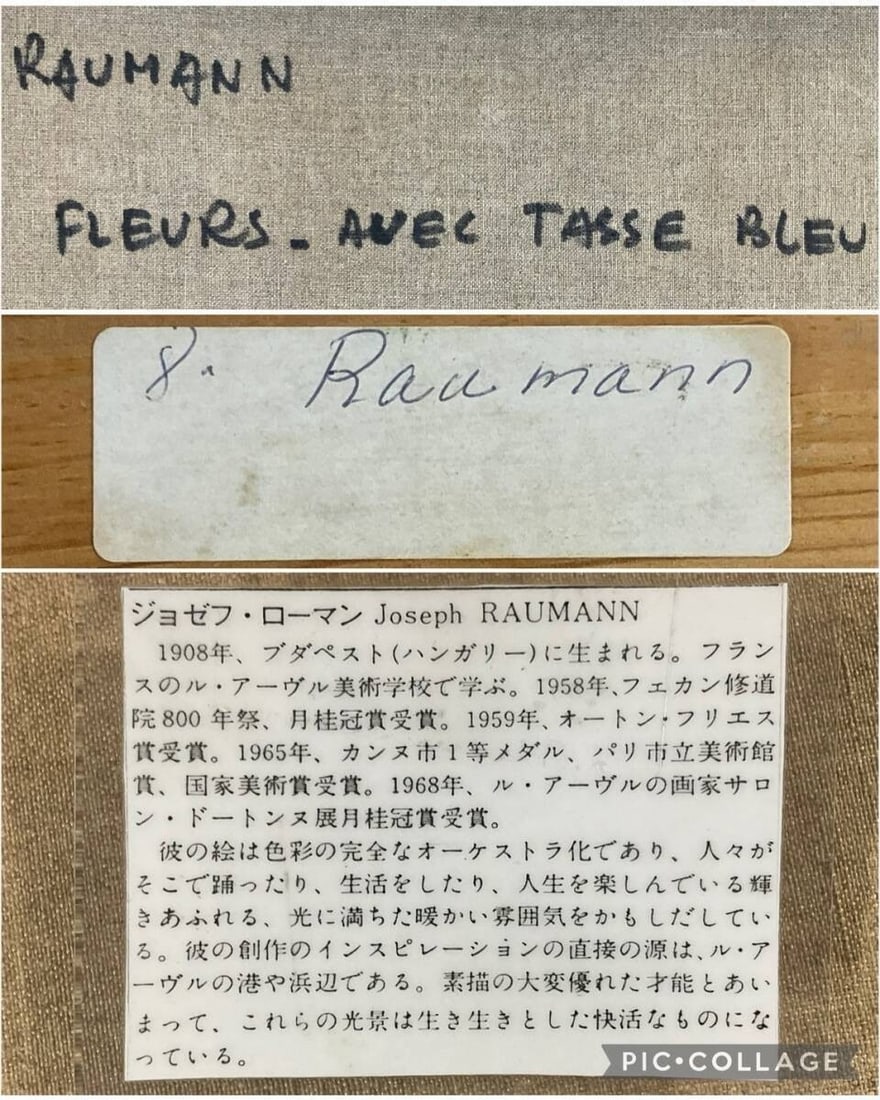 RAUMANN
FLEURS - AVEC TASSE BLEU
8. Raumann
ジョゼフ・ローマン Joseph RAUMANN
1908年、ブダペスト(ハンガリー)に生まれる。フラン
スのル・アーヴル美術学校で学ぶ。1958年、フェカン修道
院800年祭、月桂冠賞受賞。1959年、オートン・フリエス
賞受賞。1965年、カンヌ市1等メダル、パリ市立美術館
賞、国家美術賞受賞。1968年、ル・アーヴルの画家サロ
ン・ドートンヌ展月桂冠賞受賞。
彼の絵は色彩の完全なオーケストラ化であり、人々が
そこで踊ったり、生活をしたり、人生を楽しんでいる輝
きあふれる、光に満ちた暖かい雰囲気をかもしだしてい
る。彼の創作のインスピレーションの直接の源は、ル・ア
ーヴルの港や浜辺である。素描の大変優れた才能とあい
まって、これらの光景は生き生きとした快活なものにな
っている。
PIC•COLLAGE